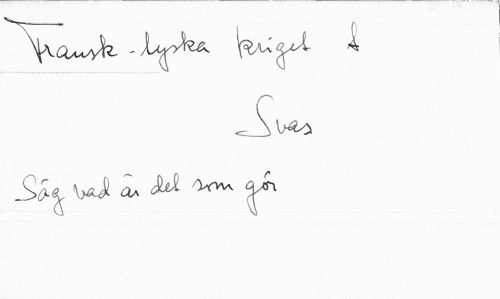 Fransk-tyska kriget
Svar
Säg vad är det som gör